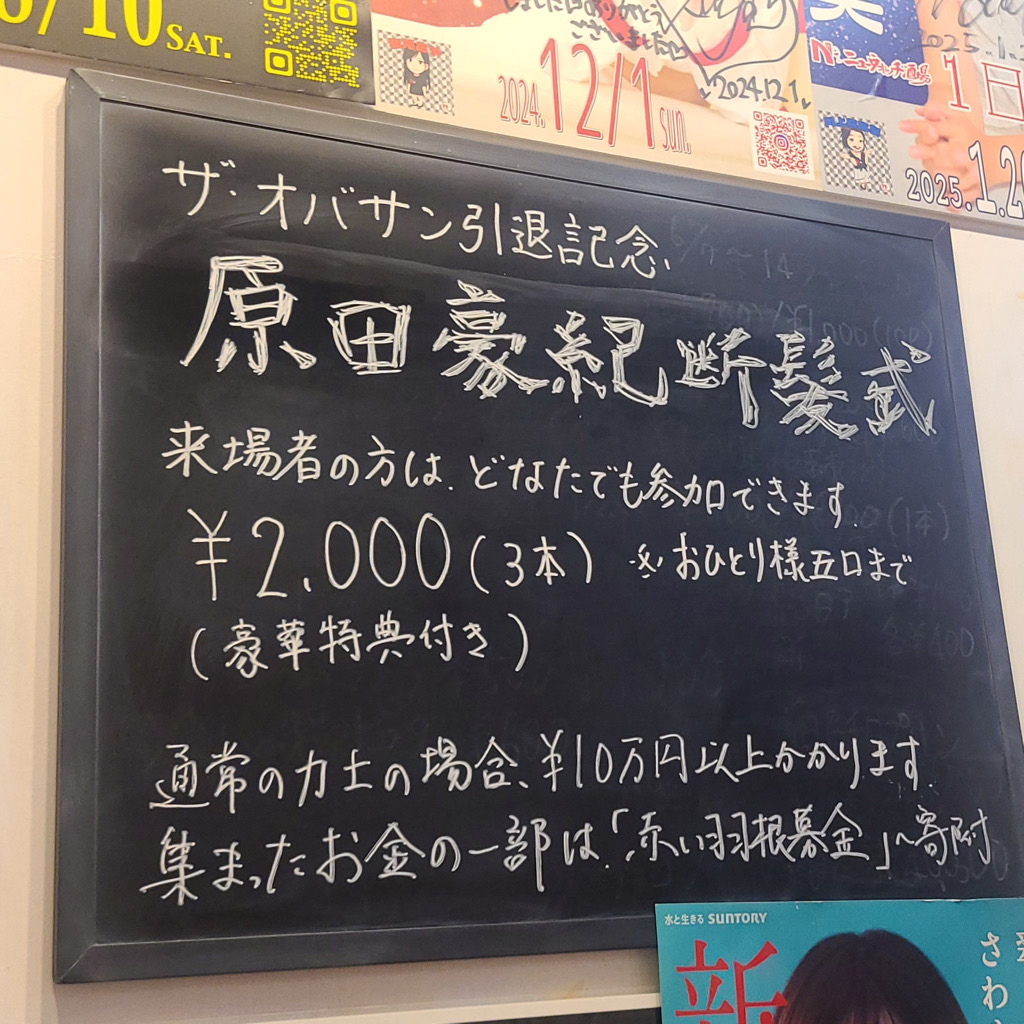 6/10 SAT.
ございました
2024. 12/1 sun.
2024.12.1
N ニューダッチ酒場
1日
2025.1.2
ザ・オバサン引退記念、
原田豪紀断髪式
来場者の方は、どなたでも参加できます。
¥2,000(3本) ※おひとり様五口まで
(豪華特典付き)
通常の力士の場合、¥10万円以上かかります。
集まったお金の一部は、「赤い羽根募金」へ寄附
水と生きる SUNTORY
新
さわ